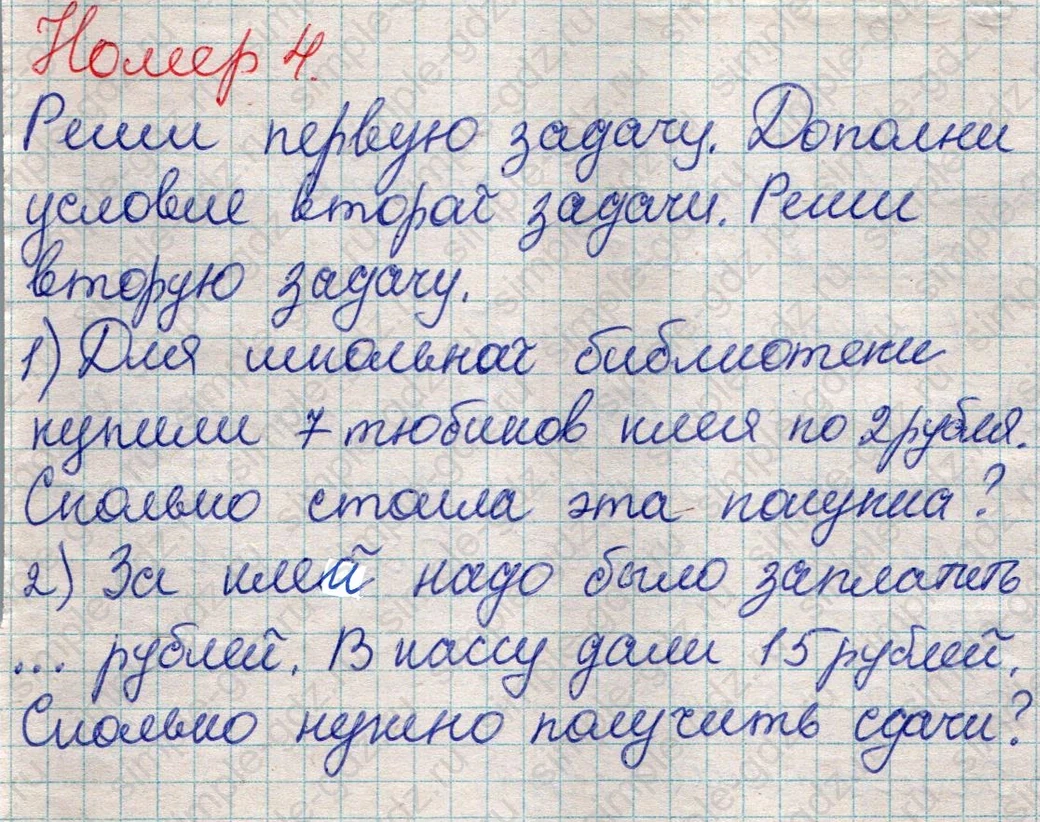 Номер 4.
Реши первую задачу. Дополни
условие второй задачи. Реши
вторую задачу.
1) Для школьной библиотеки
купили 7 тюбиков клея по 2 рубля.
Сколько стоила эта покупка?
2) За клей надо было заплатить
... рублей. В кассу дали 15 рублей.
Сколько нужно получить сдачи?